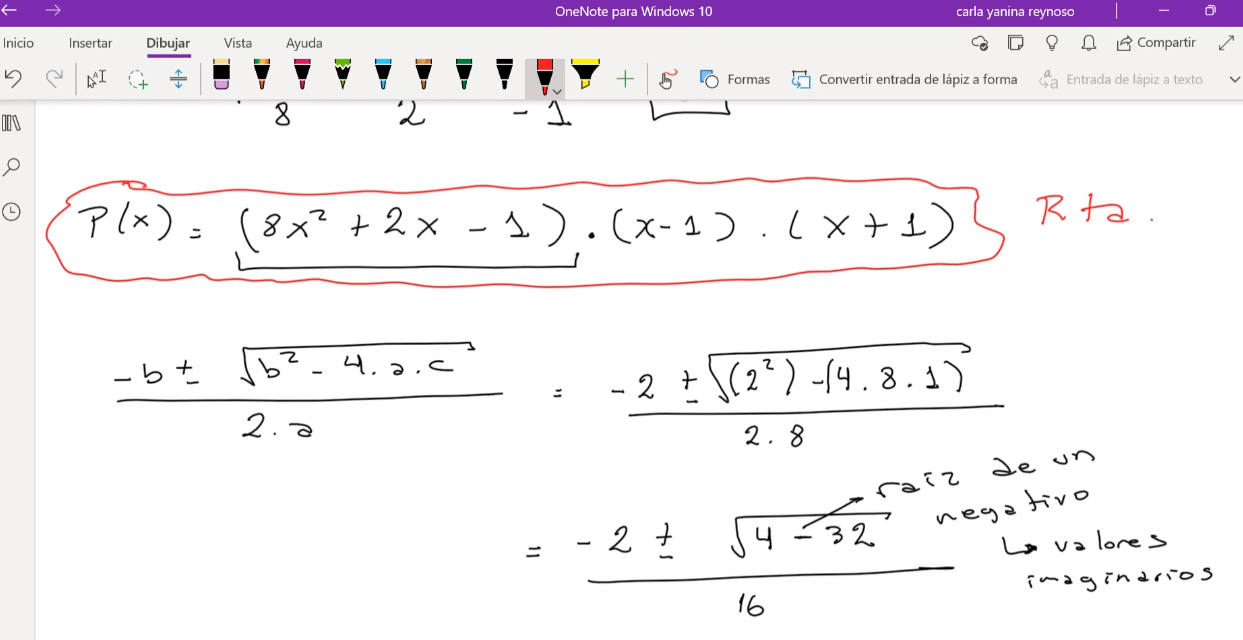 OneNote para Windows 10
carla yanina reynoso
Inicio Insertar Dibujar Vista Ayuda Compartir
Formas Convertir entrada de lápiz a forma Entrada de lápiz a texto
8 2 - 1
P(x) = (8x² + 2x - 1) . (x-1) . (x+1) Rta.
-b ± √b² - 4.a.c = -2 ± √(2²) -(4.8.1)
2.a 2.8
raíz de un
negativo
= -2 ± √4 - 32
↳ valores
imaginarios
16